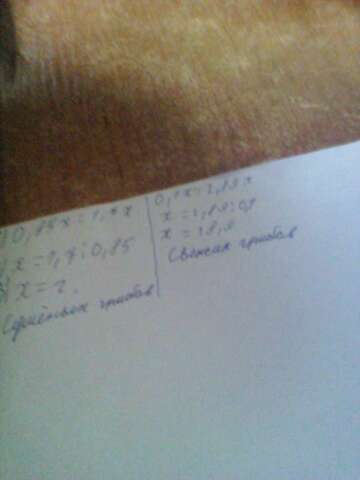 0,85x = 1,7
x = 1,7 : 0,85
x = 2.
Сушёных грибов
x = 1,89 : 0,1
x = 18,9
Свежих грибов